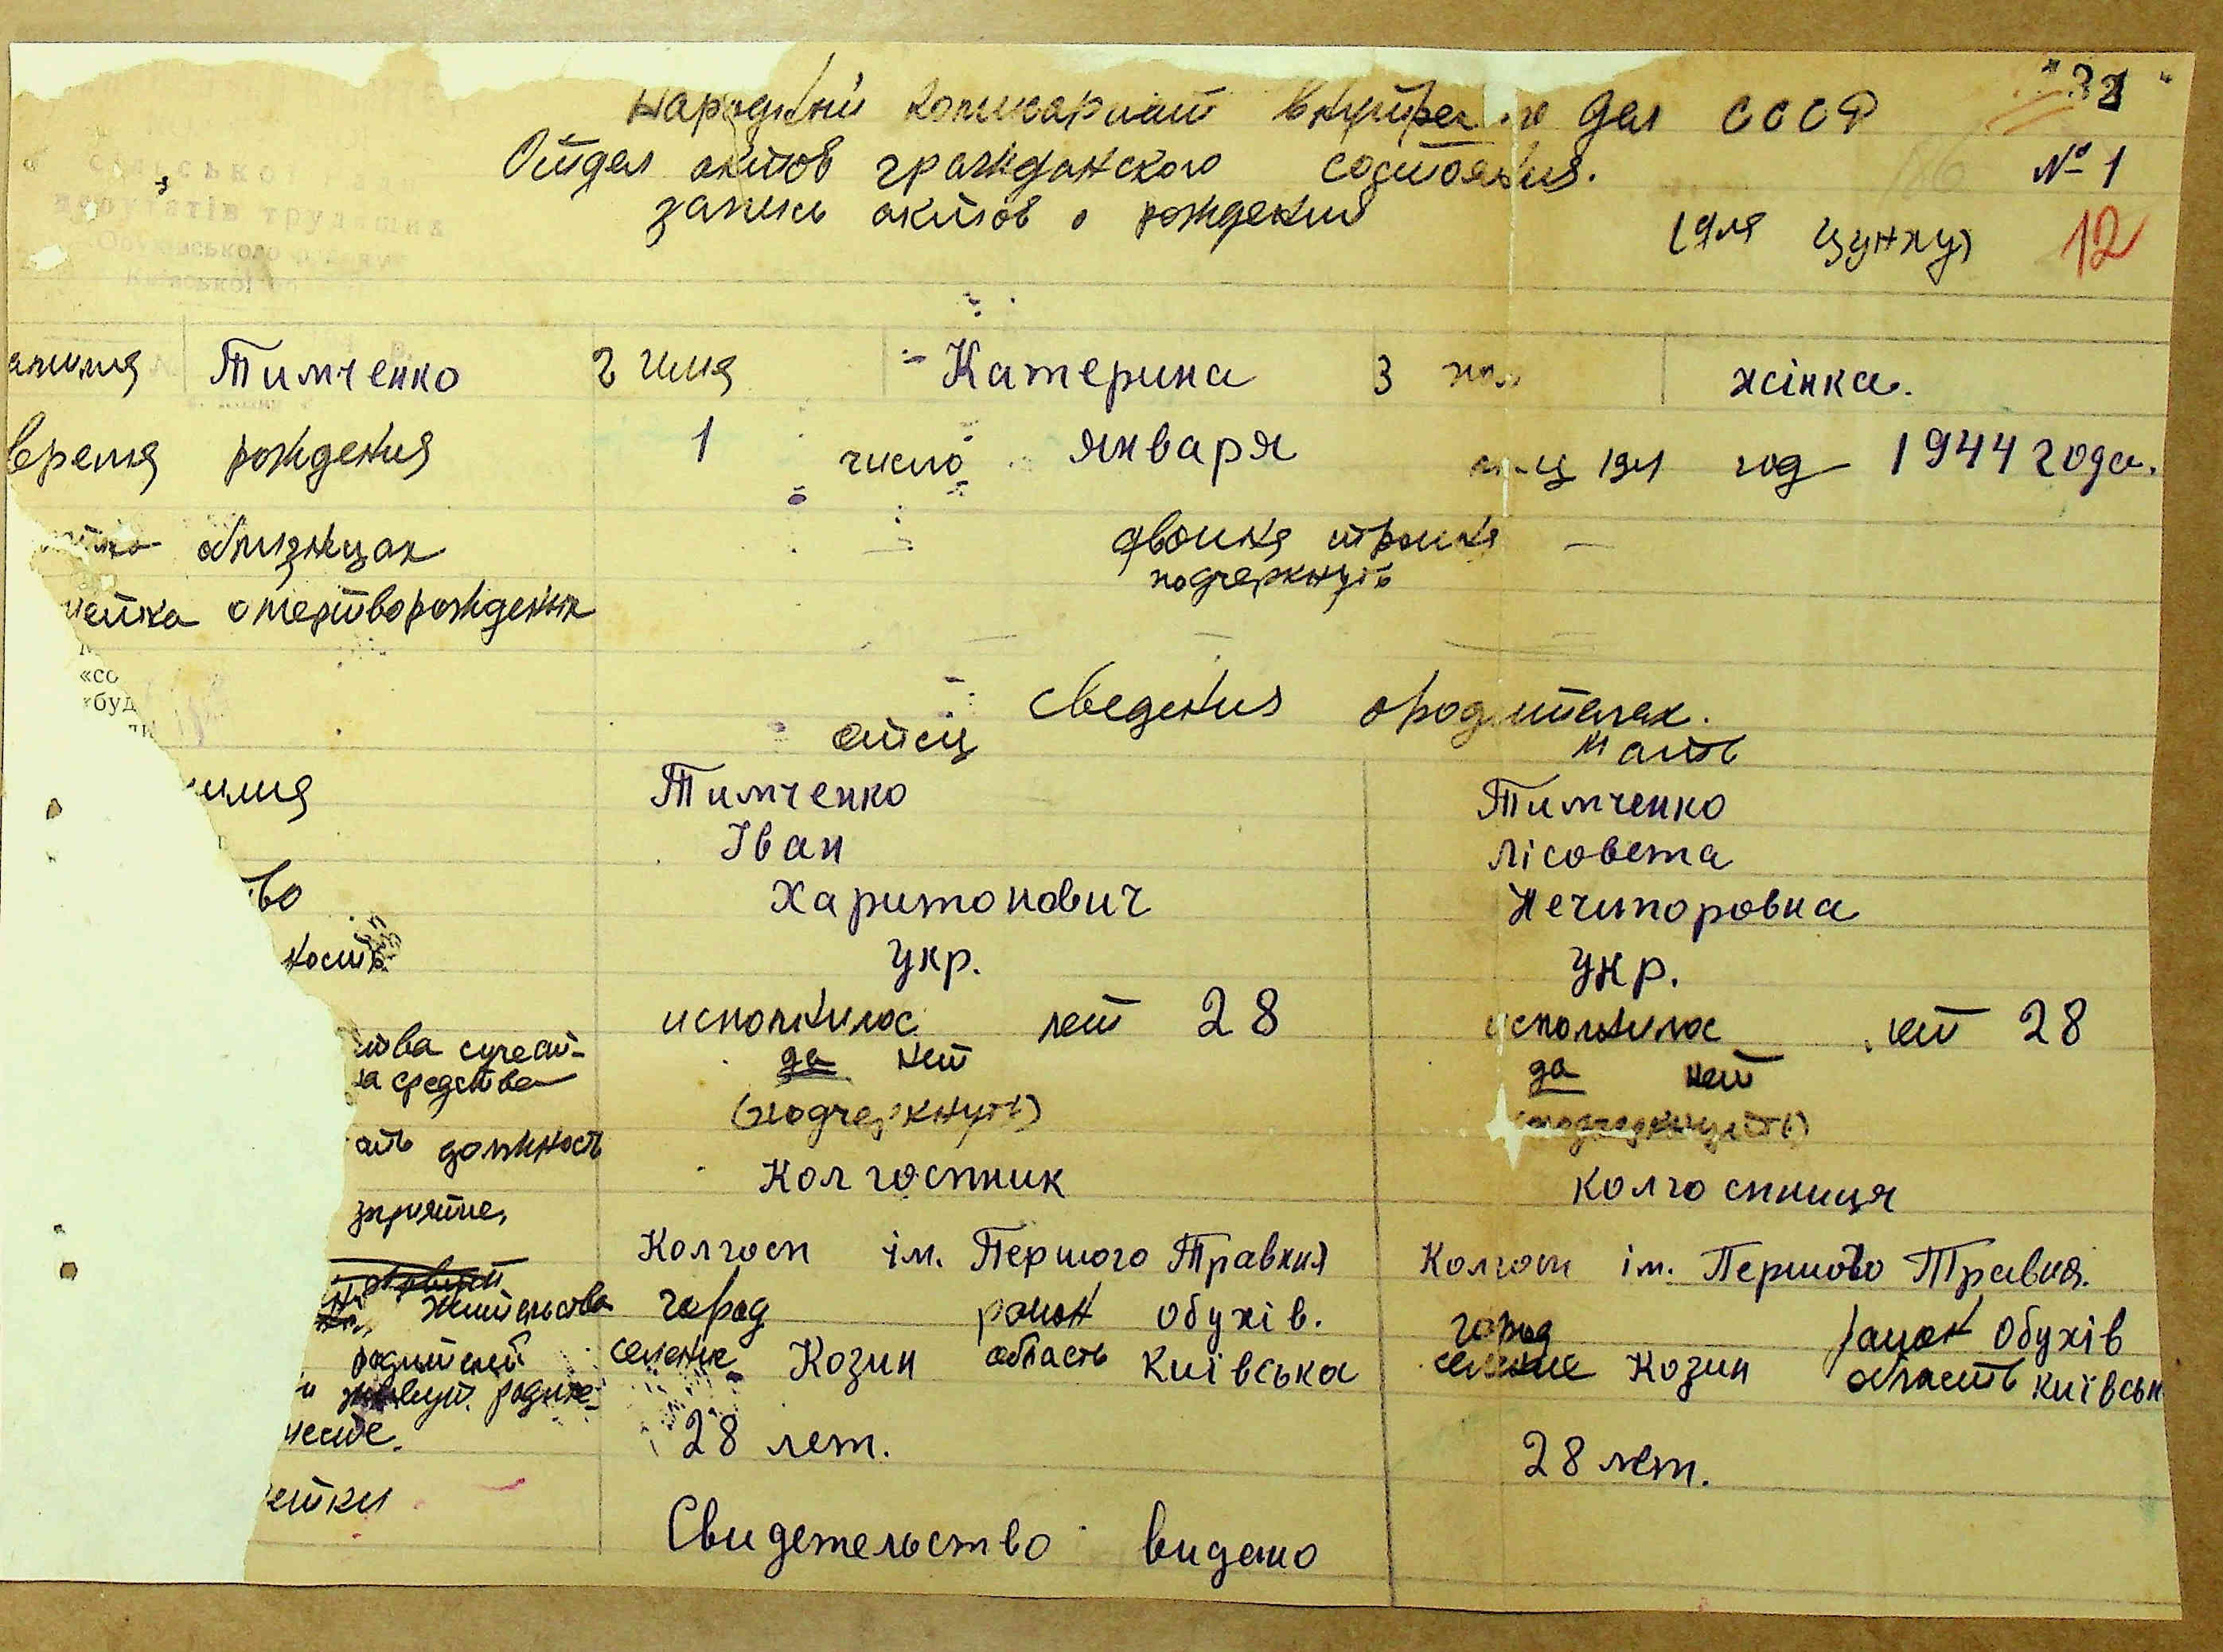 "31"
Народний комисариат внутрен го дел СССР
Отдел актов гражданского состояния.
№ 1
запись актов о рождении
(для цунху)
12
сільської ради
депутатів трудящих
Обухівського району
Київської
амилия Тимченко 2 имя - Катерина 3 пол жінка.
время рождения 1 число января м-ц 194 год 1944 года.
близнецах двойня тройня —
подчеркнуть
метка о мертворожденых
«со
«буд
сведения о родителях.
отец мать
милия Тимченко Тимченко
Іван Лісовета
тво Харитонович Нечипоровна
ность укр. укр.
исполнилос лет 28 исполнилос лет 28
ства сущест-
да нет да нет
за средства
(подчеркнуть) (подчеркнуть)
ать должность
Колгоспник колгоспниця
зприятие,
Колгосп ім. Першого Травня Колгосп ім. Першого Травня.
жительства город район Обухів. город район Обухів
родителей селение Козин область Київська селение Козин область київськ
и живут. родите-
месте. 28 лет. 28 лет.
метки
Свидетельство видано